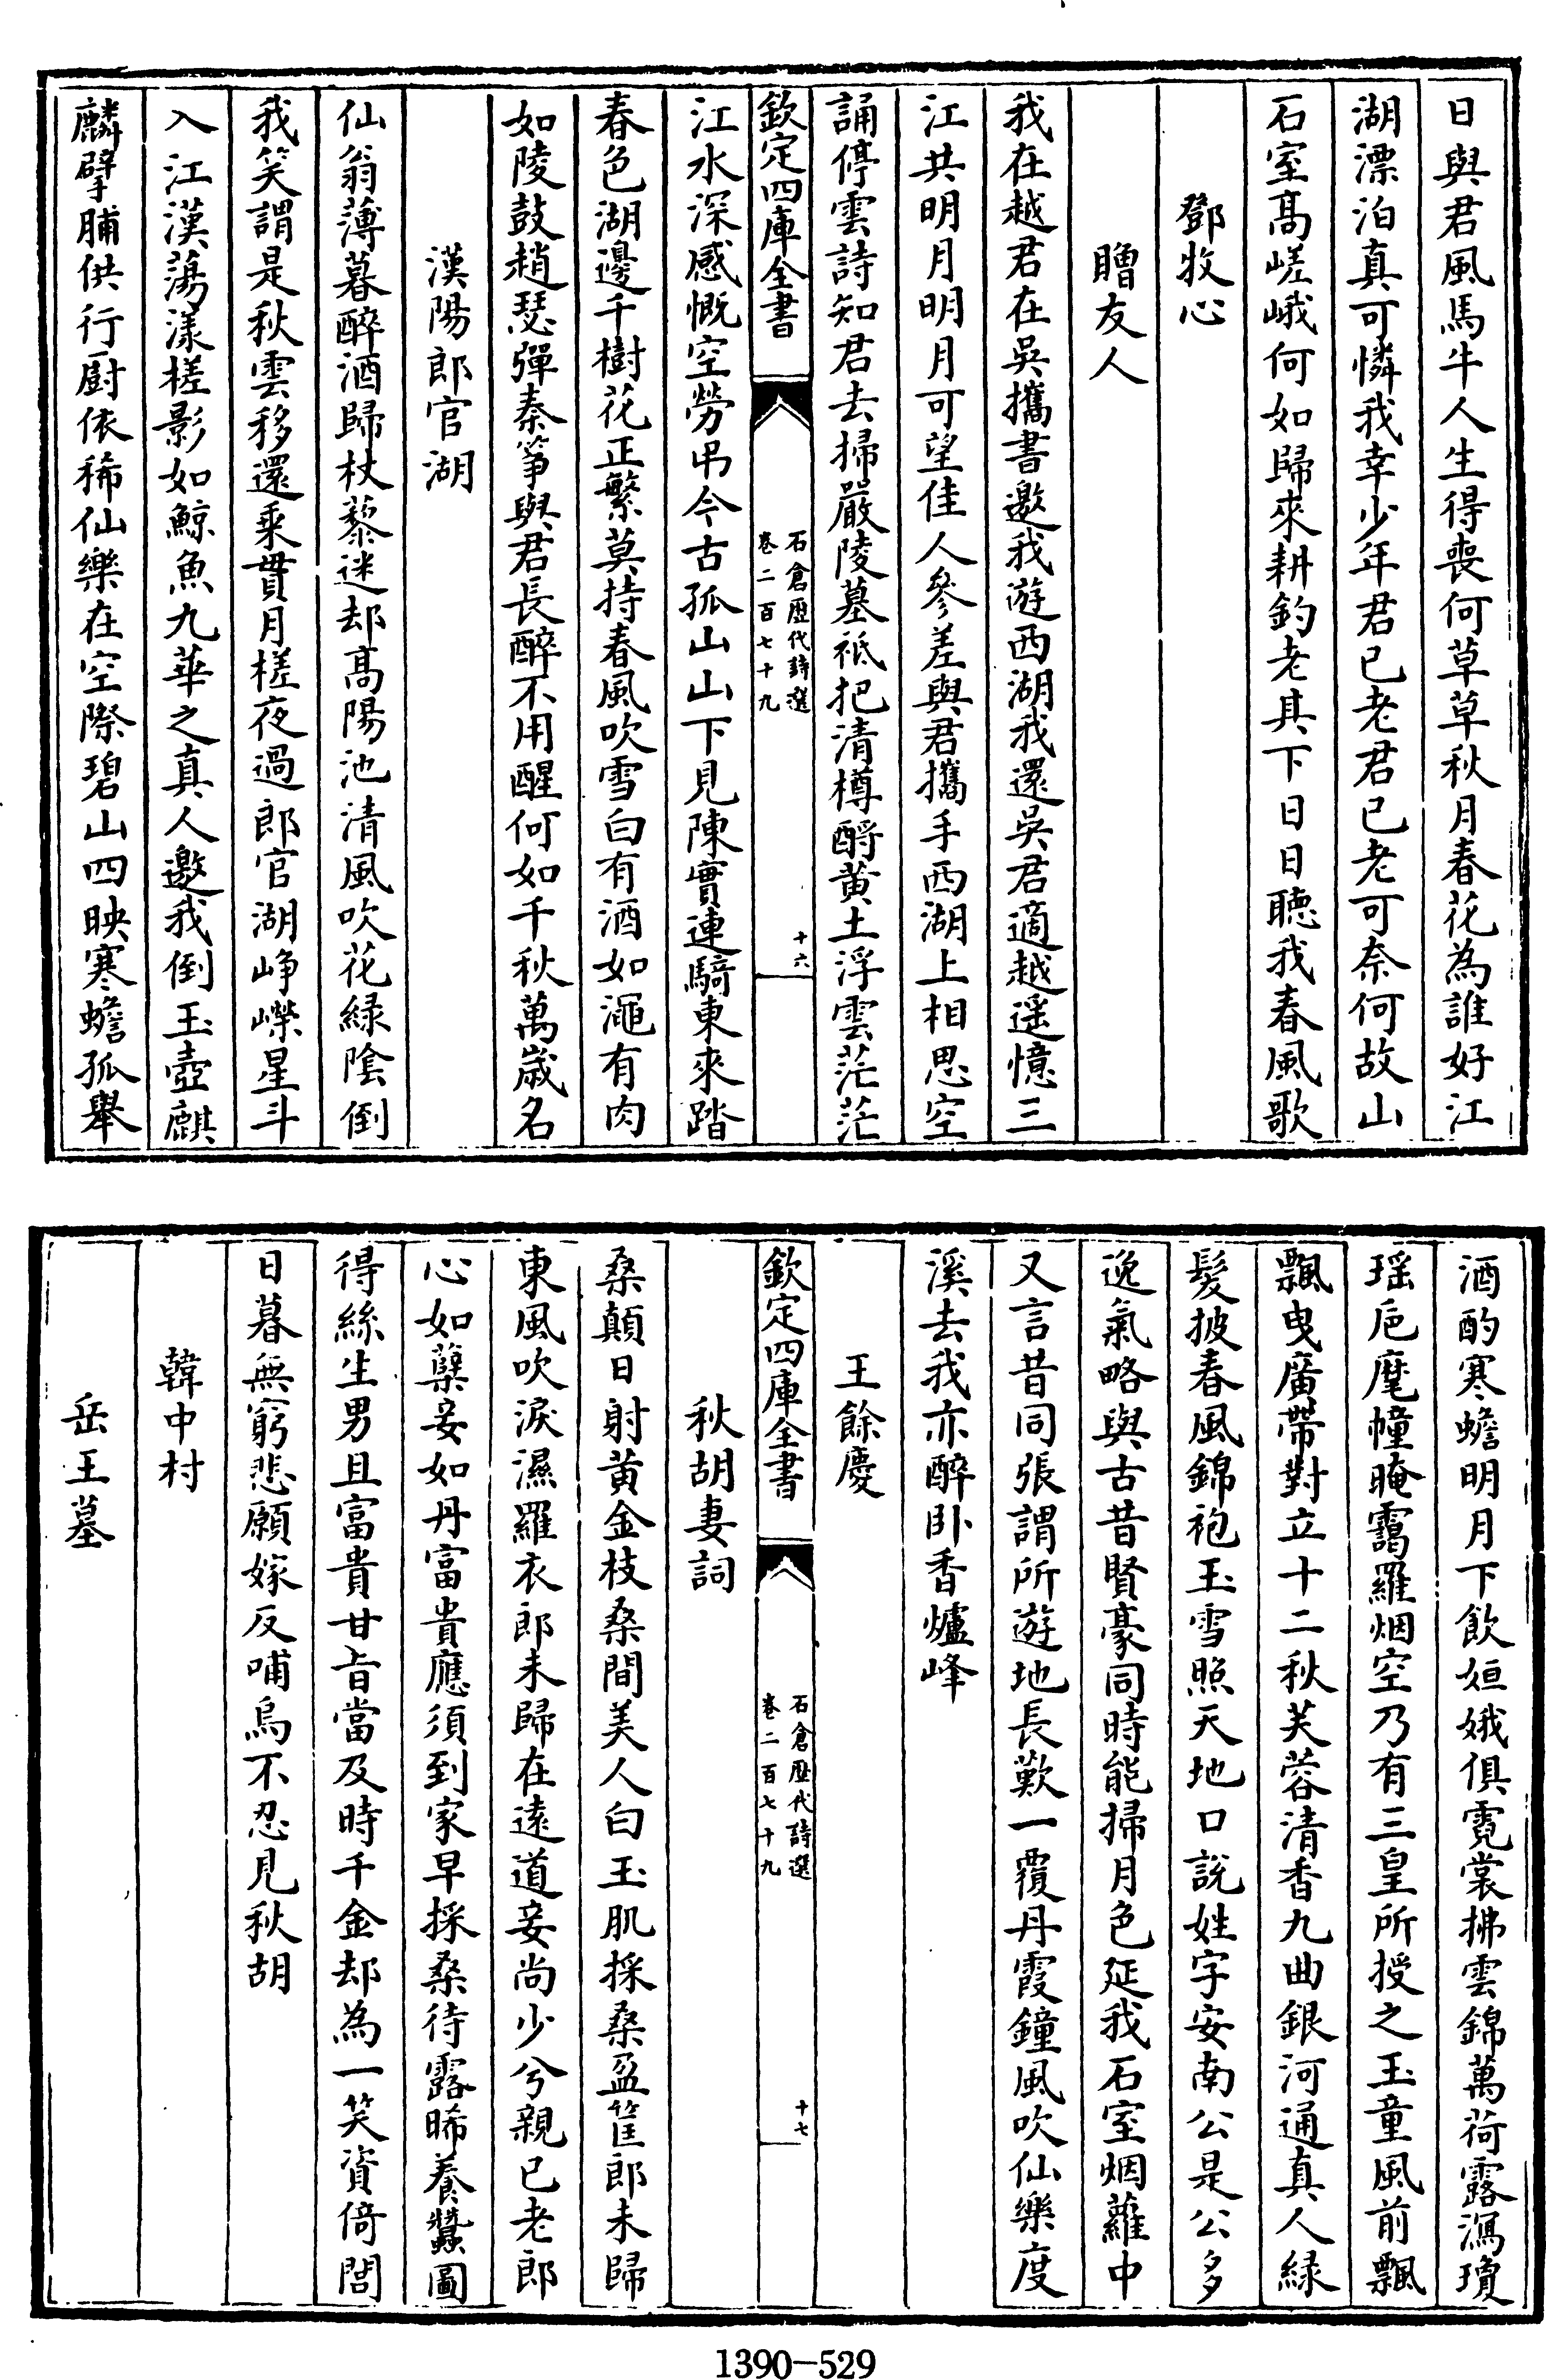 日與君風馬牛人生得喪何草草秋月春花為誰好江
湖漂泊真可憐我幸少年君已老君已老可奈何故山
石室髙嵯峨何如歸來耕釣老其下日日聽我春風歌
鄧牧心
贈友人
我在越君在吳攜書邀我遊西湖我還吳君適越遥憶三
江共明月明月可望佳人參差與君攜手西湖上相思空
誦停雲詩知君去掃嚴陵墓祗把清樽酹黄土浮雲茫茫
欽定四庫全書
石倉歴代詩選
卷二百七十九
十六
江水深感慨空勞弔今古孤山山下見陳實連騎東來踏
春色湖邊千樹花正繁莫持春風吹雪白有酒如澠有肉
如陵鼓趙瑟彈秦筝與君長醉不用醒何如千秋萬歲名
漢陽郎官湖
仙翁薄暮醉酒歸杖藜迷却髙陽池清風吹花緑陰倒
我笑謂是秋雲移還乘貫月槎夜過郎官湖崢嶸星斗
入江漢蕩漾槎影如鯨魚九華之真人邀我倒玉壺麒
麟擘脯供行厨依稀仙樂在空際碧山四映寒蟾孤舉
酒酌寒蟾明月下飲姮娥俱霓裳拂雲錦萬荷露瀉瓊
瑶巵麾幢晻靄羅烟空乃有三皇所授之玉童風前飄
飄曳廣帶對立十二秋芙蓉清香九曲銀河通真人緑
髮披春風錦袍玉雪照天地口說姓字安南公是公多
逸氣略與古昔賢豪同時能掃月色延我石室烟蘿中
又言昔同張謂所遊地長歎一覆丹霞鐘風吹仙樂度
溪去我亦醉卧香爐峰
王餘慶
欽定四庫全書
石倉歴代詩選
卷二百七十九
十七
秋胡妻詞
桑顛日射黄金枝桑間美人白玉肌採桑盈筐郎未歸
東風吹淚濕羅衣郎未歸在逺道妾尚少兮親已老郎
心如蘗妾如丹富貴應須到家早採桑待露晞養蠶圖
得絲生男且富貴甘旨當及時千金却為一笑資倚閭
日暮無窮悲願嫁反哺烏不忍見秋胡
韓中村
岳王墓
1390-529